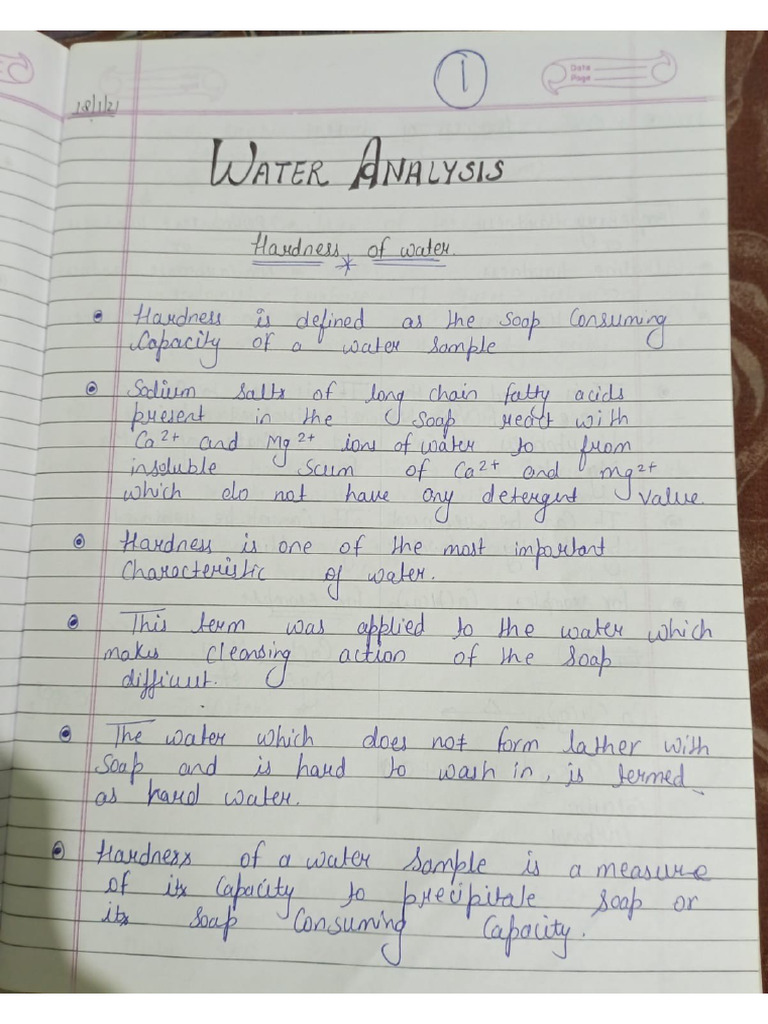 1
Date
Page
18/1/21
WATER ANALYSIS
Hardness of water.
Hardness is defined as the soap consuming
capacity of a water sample
Sodium salts of long chain fatty acids
present in the soap react with
Ca2+ and Mg2+ ions of water to from
insoluble scum of Ca2+ and mg2+
which do not have any detergent value.
Hardness is one of the most important
characteristic of water.
This term was applied to the water which
makes cleansing action of the soap
difficult.
The water which does not form lather with
soap and is hard to wash in, is termed
as hard water.
Hardness of a water sample is a measure
of its capacity to precipitate soap or
its soap consuming capacity.